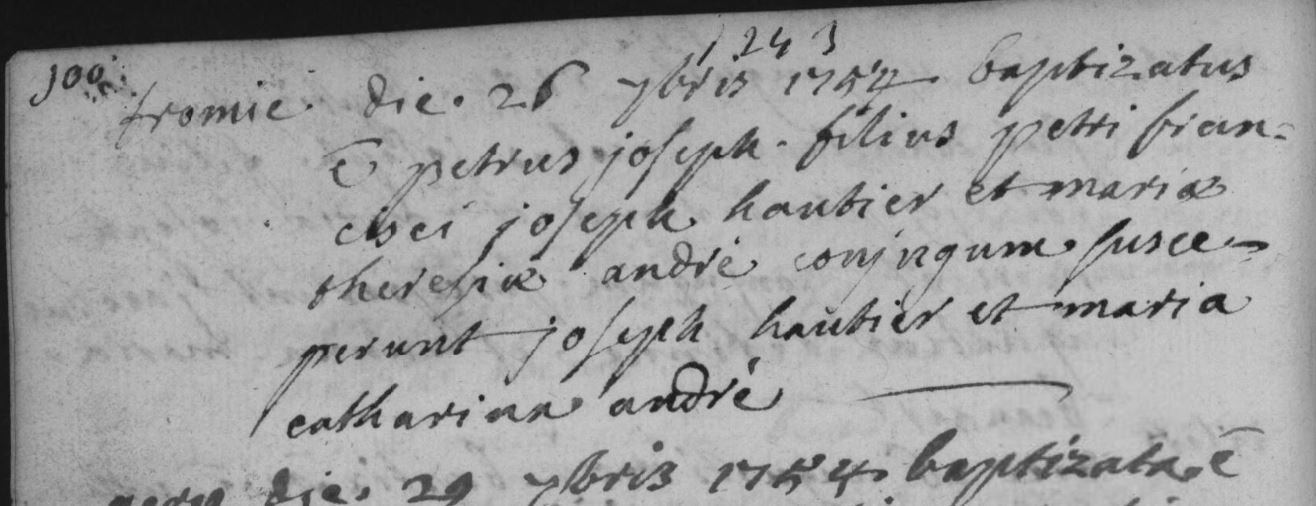 243
100.
tromie. die. 26 7bris 1754 baptizatus
ē petrus joseph. filius petri fran-
cisci joseph hautier et mariæ
theresiæ andré conjugum susce-
perunt joseph hautier et maria
catharina andré
die. 29 7bris 1754. baptizata ē